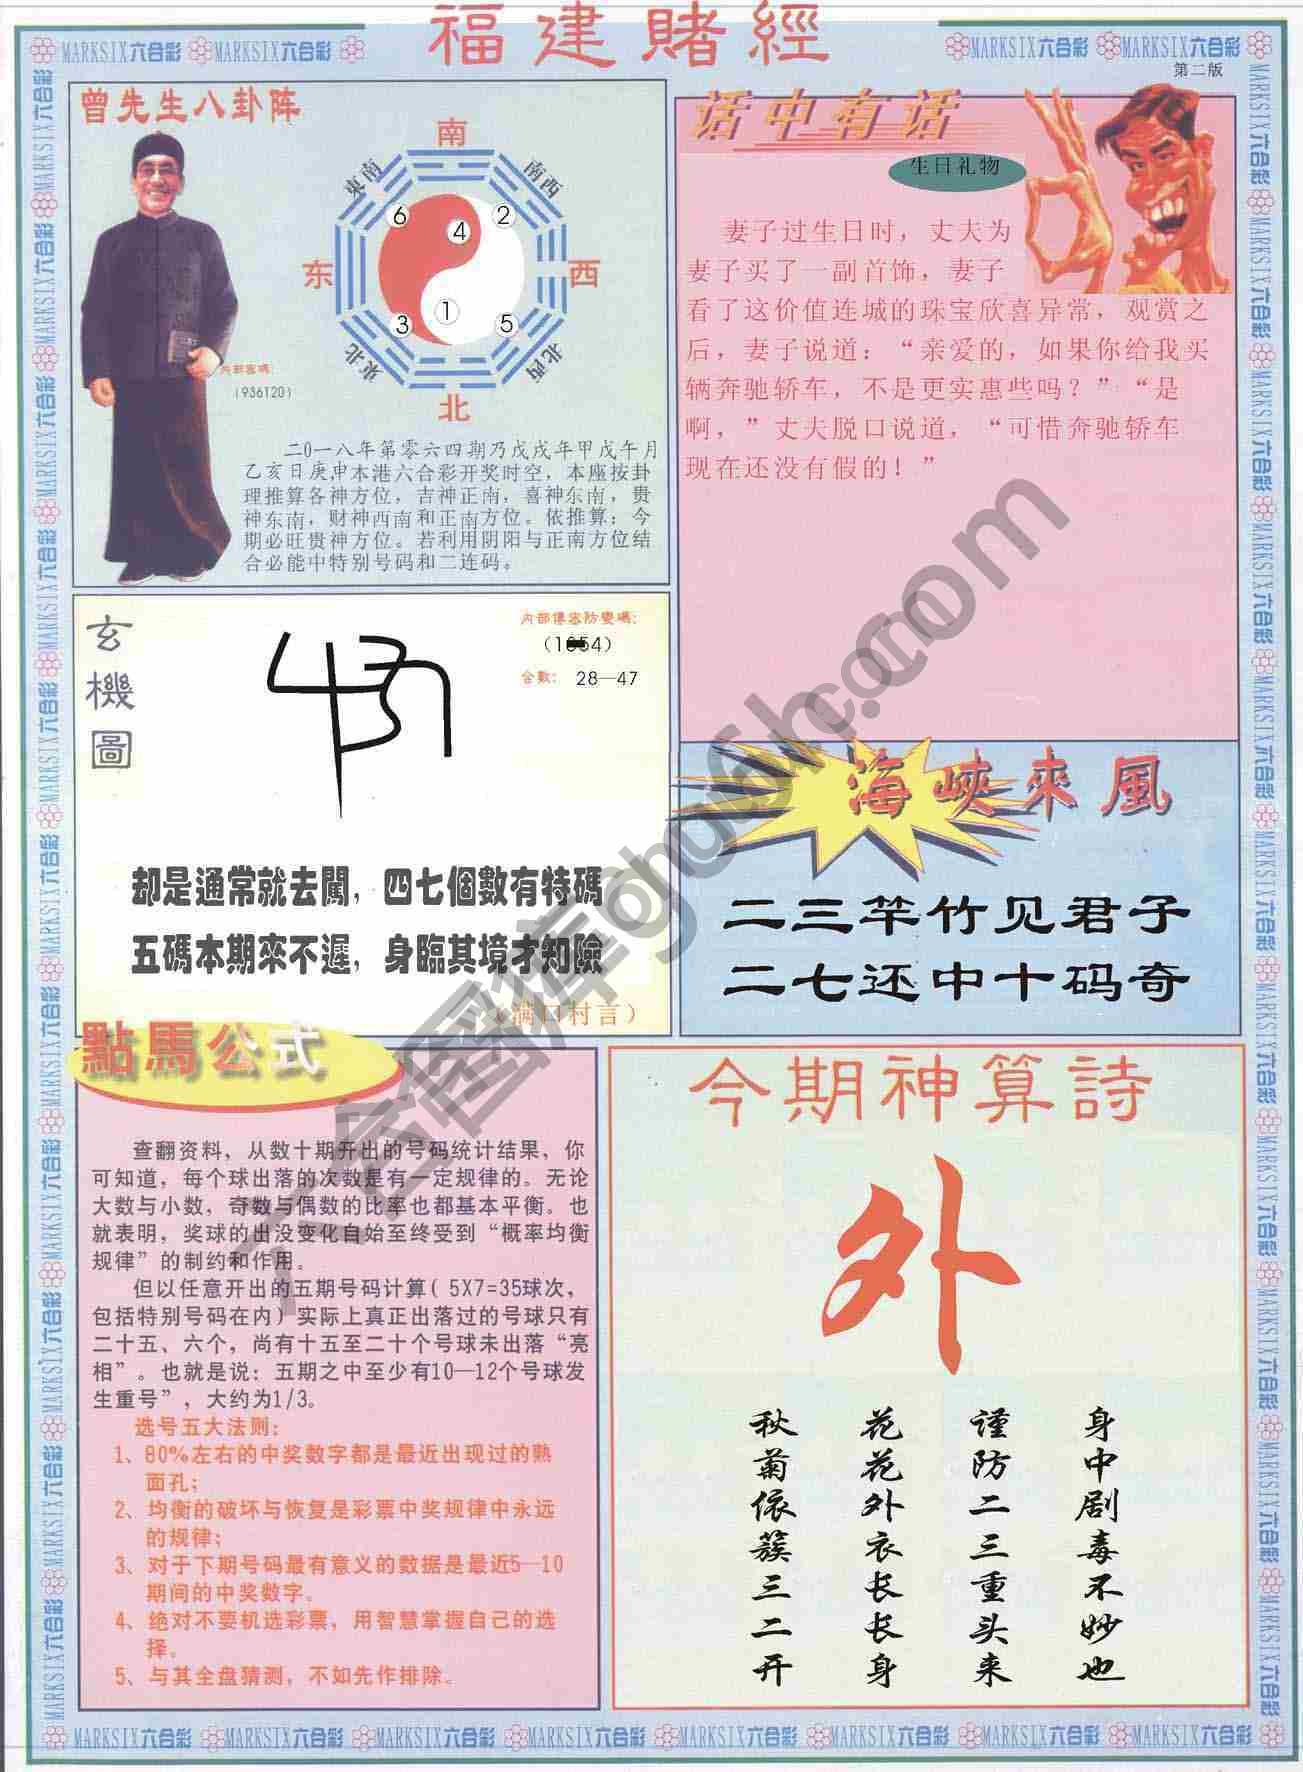 福建賭經
MARKSIX六合彩 MARKSIX六合彩
MARKSIX六合彩 MARKSIX六合彩
第二版
曾先生八卦阵
南
東南
南西
6
2
4
东
西
1
3
5
東北
北西
北
内部密碼：
(936120)
二0一八年第零六四期乃戊戌年甲戊午月
乙亥日庚申本港六合彩开奖时空，本座按卦
理推算各神方位，吉神正南，喜神东南，贵
神东南，财神西南和正南方位。依推算：今
期必旺贵神方位。若利用阴阳与正南方位结
合必能中特别号码和二连码。
话中有话
生日礼物
妻子过生日时，丈夫为
妻子买了一副首饰，妻子
看了这价值连城的珠宝欣喜异常，观赏之
后，妻子说道：“亲爱的，如果你给我买
辆奔驰轿车，不是更实惠些吗？”“是
啊，”丈夫脱口说道，“可惜奔驰轿车
现在还没有假的！”
玄機圖
内部傳密防變碼：
合數： 28—47
却是通常就去闖，四七個數有特碼
五碼本期來不遲，身臨其境才知險
（满口村言）
海峽來風
二三竿竹见君子
二七还中十码奇
點馬公式
查翻资料，从数十期开出的号码统计结果，你
可知道，每个球出落的次数是有一定规律的。无论
大数与小数，奇数与偶数的比率也都基本平衡。也
就表明，奖球的出没变化自始至终受到“概率均衡
规律”的制约和作用。
但以任意开出的五期号码计算（5X7=35球次，
包括特别号码在内）实际上真正出落过的号球只有
二十五、六个，尚有十五至二十个号球未出落“亮
相”。也就是说：五期之中至少有10—12个号球发
生重号”，大约为1/3。
选号五大法则：
1、80%左右的中奖数字都是最近出现过的熟
面孔；
2、均衡的破坏与恢复是彩票中奖规律中永远
的规律；
3、对于下期号码最有意义的数据是最近5—10
期间的中奖数字。
4、绝对不要机选彩票，用智慧掌握自己的选
择。
5、与其全盘猜测，不如先作排除。
今期神算詩
外
身中剧毒不妙也
谨防二三重头来
花花外衣长长身
秋菊依簇三二开
MARKSIX六合彩 MARKSIX六合彩 MARKSIX六合彩 MARKSIX六合彩 MARKSIX六合彩 MARKSIX六合彩 MARKSIX六合彩 MARKSIX六合彩